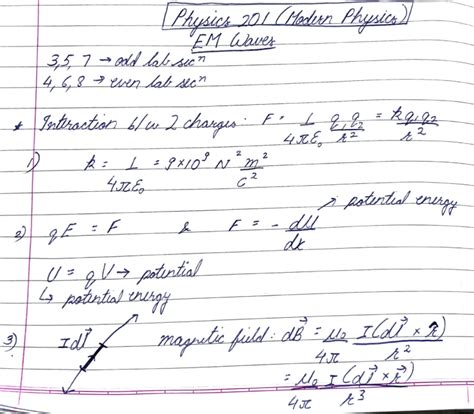 Physics 201 (Modern Physics)
EM Waves
3,5,7 → odd lab secⁿ
4,6,8 → even lab secⁿ
* Interaction b/w 2 charges: F = 1/4πε₀ q₁q₂/r² = kq₁q₂/r²
1) k = 1/4πε₀ = 9×10⁹ N² m²/c²
→ potential energy
2) qE = F & F = - dU/dx
U = qV → potential
↳ potential energy
3) Idl⃗ magnetic field: dB⃗ = μ₀/4π I(dl⃗ × r̂)/r²
= μ₀/4π I(dl⃗ × r⃗)/r³